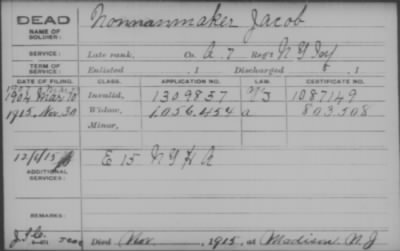 DEAD Nonnanmaker Jacob
NAME OF SOLDIER:
SERVICE: Late rank, Co. A. 7 Reg't N Y Inf
TERM OF SERVICE: Enlisted , 1 Discharged , 1
DATE OF FILING. CLASS. APPLICATION NO. LAW. CERTIFICATE NO.
1904 Mar 10 Invalid, 1309857 1087149
1915, Nov. 30 Widow, 1.056.454 a 803.508
Minor,
12/6/15 E 15 N Y H A
ADDITIONAL SERVICES:
REMARKS:
Died Nov , 1915, at Madison N. J.